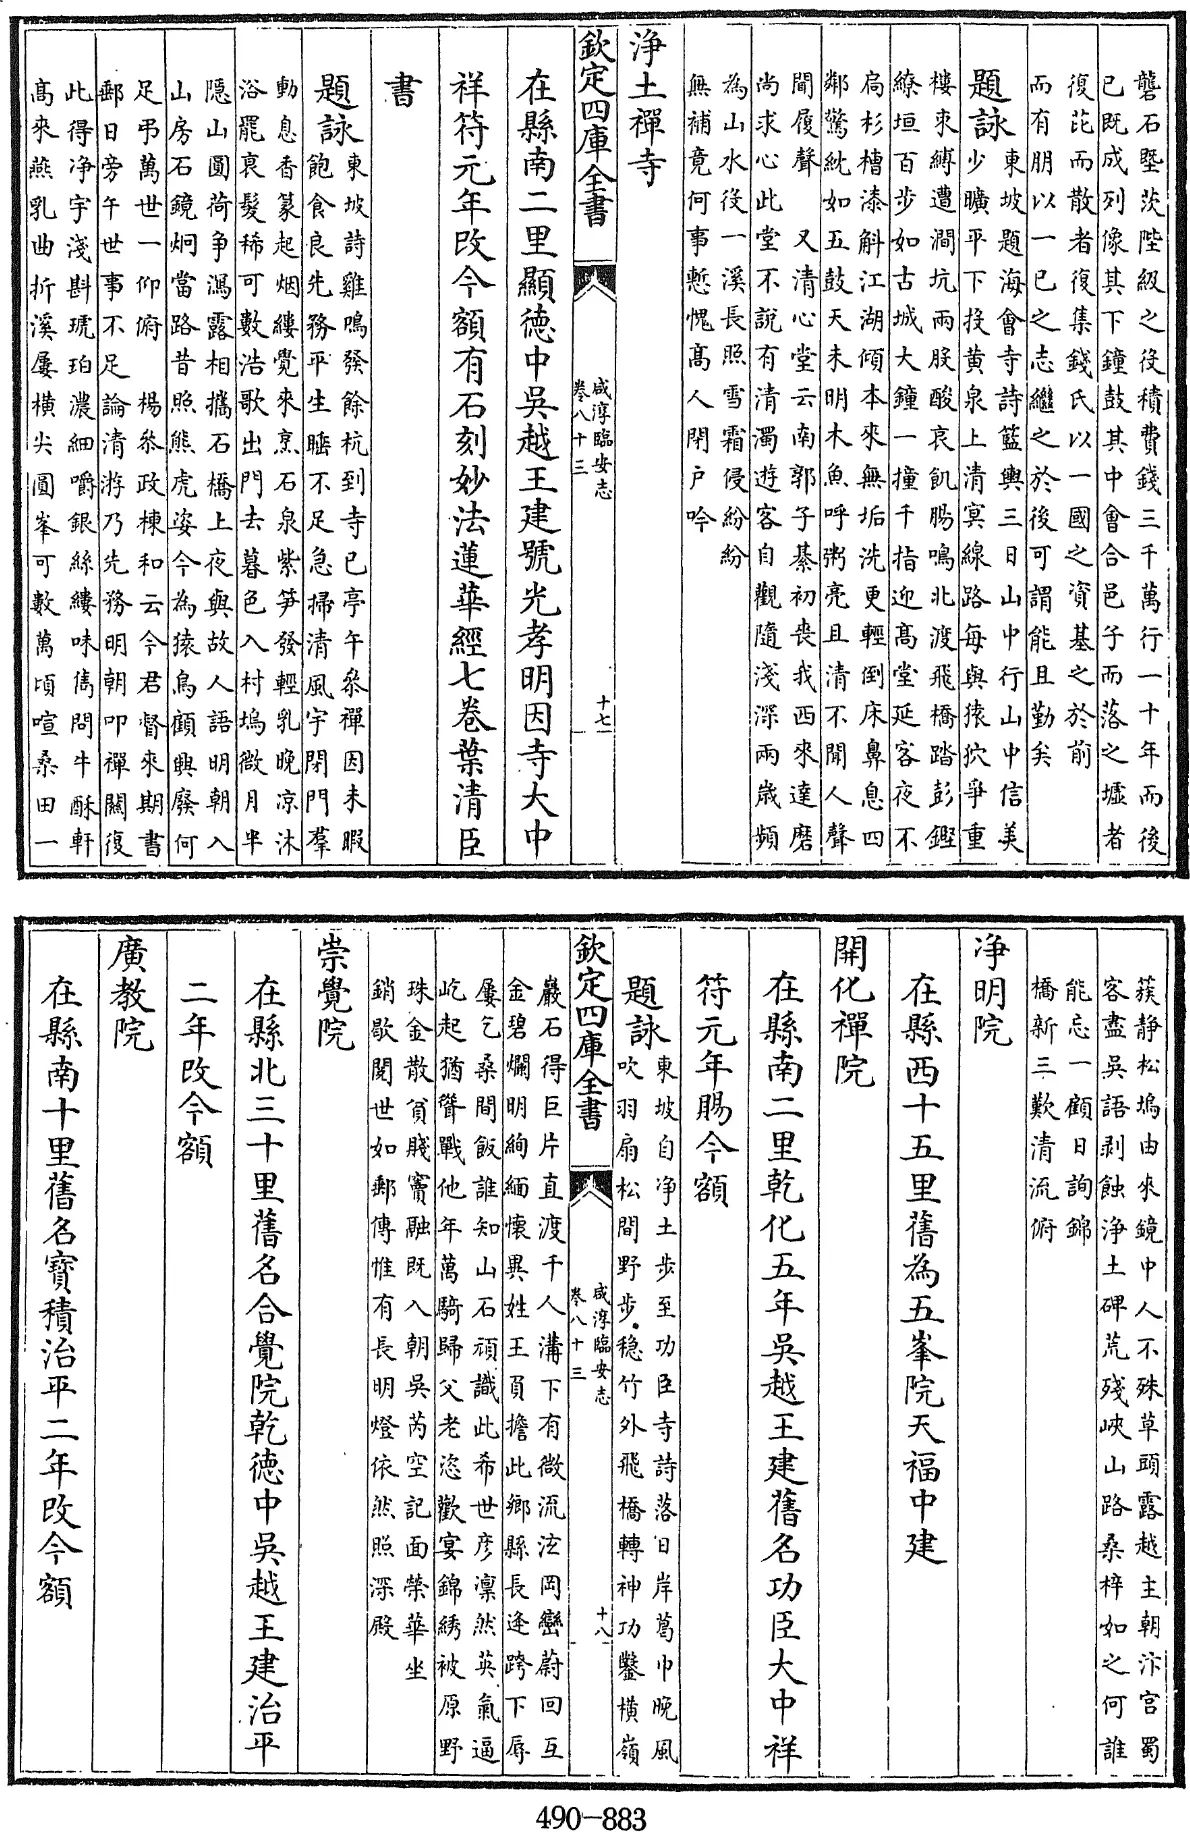 礱石堅茨陛級之役積費錢三千萬行一十年而後
已既成列像其下鐘鼓其中會合邑子而落之墟者
復芘而散者復集錢氏以一國之資基之於前
而有朋以一已之志繼之於後可謂能且勤矣
題詠東坡題海會寺詩籃輿三日山中行山中信美
少曠平下投黄泉上清㝠線路每與猿狖爭重
樓束縛遭澗坑兩股酸哀飢腸鳴北渡飛橋踏彭鏗
繚垣百步如古城大鐘一撞千指迎髙堂延客夜不
扃杉槽漆斛江湖傾本來無垢洗更輕倒床鼻息四
鄰驚紞如五鼓天未明木魚呼粥亮且清不聞人聲
聞履聲　又清心堂云南郭子綦初喪我西來達磨
尚求心此堂不說有清濁遊客自觀隨淺深兩歳頻
為山水役一溪長照雪霜侵紛紛
無補竟何事慙愧髙人閉戶吟
浄土禪寺
欽定四庫全書
咸淳臨安志
卷八十三
十七
在縣南二里顯徳中吳越王建號光孝明因寺大中
祥符元年改今額有石刻妙法蓮華經七卷葉清臣
書
題詠東坡詩雞鳴發餘杭到寺已亭午叅禪因未暇
飽食良先務平生睡不足急掃清風宇閉門羣
動息香篆起烟縷覺來烹石泉紫笋發輕乳晩凉沐
浴罷衰髮稀可數浩歌出門去暮色入村塢微月半
隱山圓荷争瀉露相攜石橋上夜與故人語明朝入
山房石鏡炯當路昔照熊虎姿今為猿鳥顧興廢何
足弔萬世一仰俯　楊叅政棟和云今君督來期書
郵日旁午世事不足論清游乃先務明朝叩禪關復
此得净宇淺斟琥珀濃細嚼銀絲縷味雋問牛酥軒
髙來燕乳曲折溪屢横尖圓峯可數萬頃喧桑田一
蔟静松塢由來鏡中人不殊草頭露越主朝汴宫蜀
客盡吳語剥蝕浄土碑荒殘峽山路桑梓如之何誰
能忘一顧日詢錦
橋新三歎清流俯
净明院
在縣西十五里舊為五峯院天福中建
開化禪院
在縣南二里乾化五年吳越王建舊名功臣大中祥
符元年賜今額
題詠東坡自净土步至功臣寺詩落日岸葛巾晚風
吹羽扇松間野步穏竹外飛橋轉神功鑿横嶺
欽定四庫全書
咸淳臨安志
卷八十三
十八
巖石得巨片直渡千人溝下有微流泫岡巒蔚回互
金碧爛明絢緬懷異姓王負擔此鄉縣長逢跨下辱
屢乞桑間飯誰知山石頑識此希世彦凛然英氣逼
屹起猶聳戰他年萬騎歸父老恣歡宴錦綉被原野
珠金散貧賤竇融既入朝吳芮空記面榮華坐
銷歇閱世如郵傳惟有長明燈依然照深殿
崇覺院
在縣北三十里舊名合覺院乾徳中吳越王建治平
二年改今額
廣教院
在縣南十里舊名寶積治平二年改今額
490-883